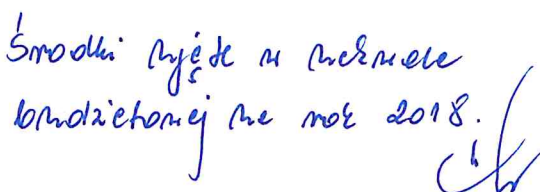 Środki ujęte w uchwale
budżetowej na rok 2018.